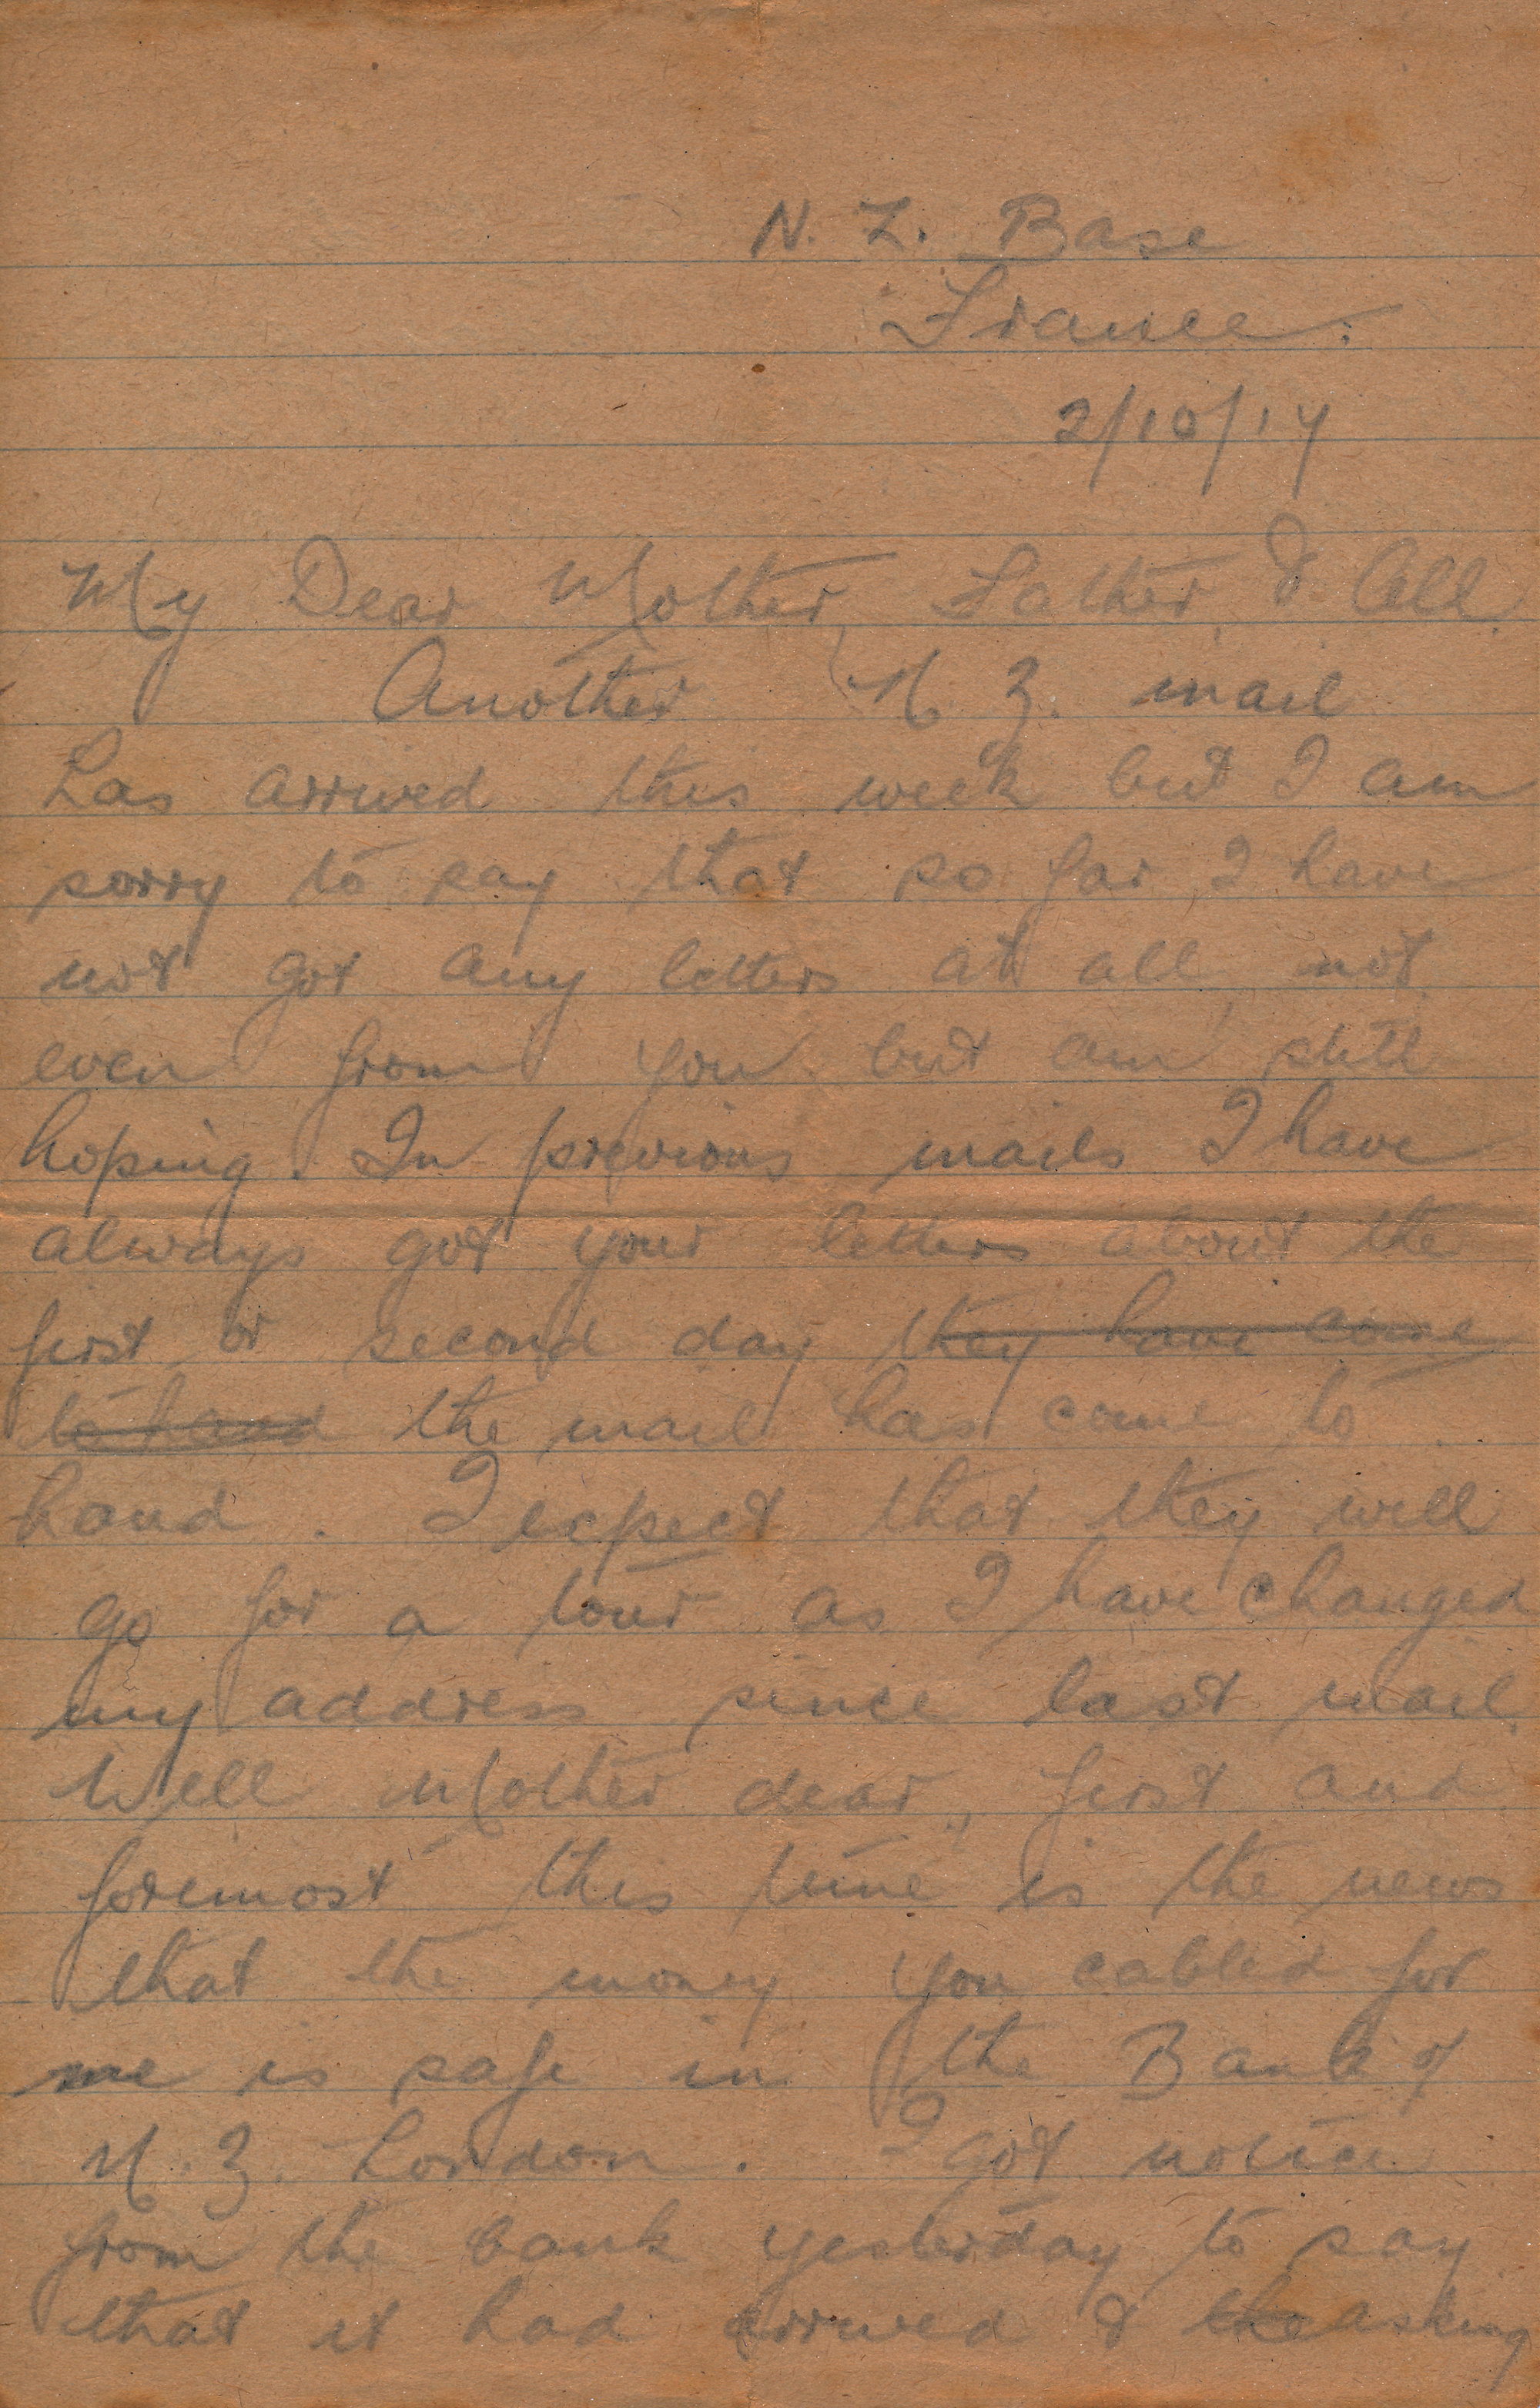 N. Z. Base
France.
2/10/17
My Dear Mother, Father, & All.
Another N. Z. mail
has arrived this week but I am
sorry to say that so far I have
not got any letters at all, not
even from you but am still
hoping. In previous mails I have
always got your letters about the
first or second day they have come
to hand the mail has come to
hand. I expect that they will
go for a tour as I have changed
my address since last mail.
Well Mother dear, first and
foremost this time is the news
that the money you cabled for
me is safe in the Bank of
N. Z. London. I got notice
from the bank yesterday to say
that it had arrived & the asking